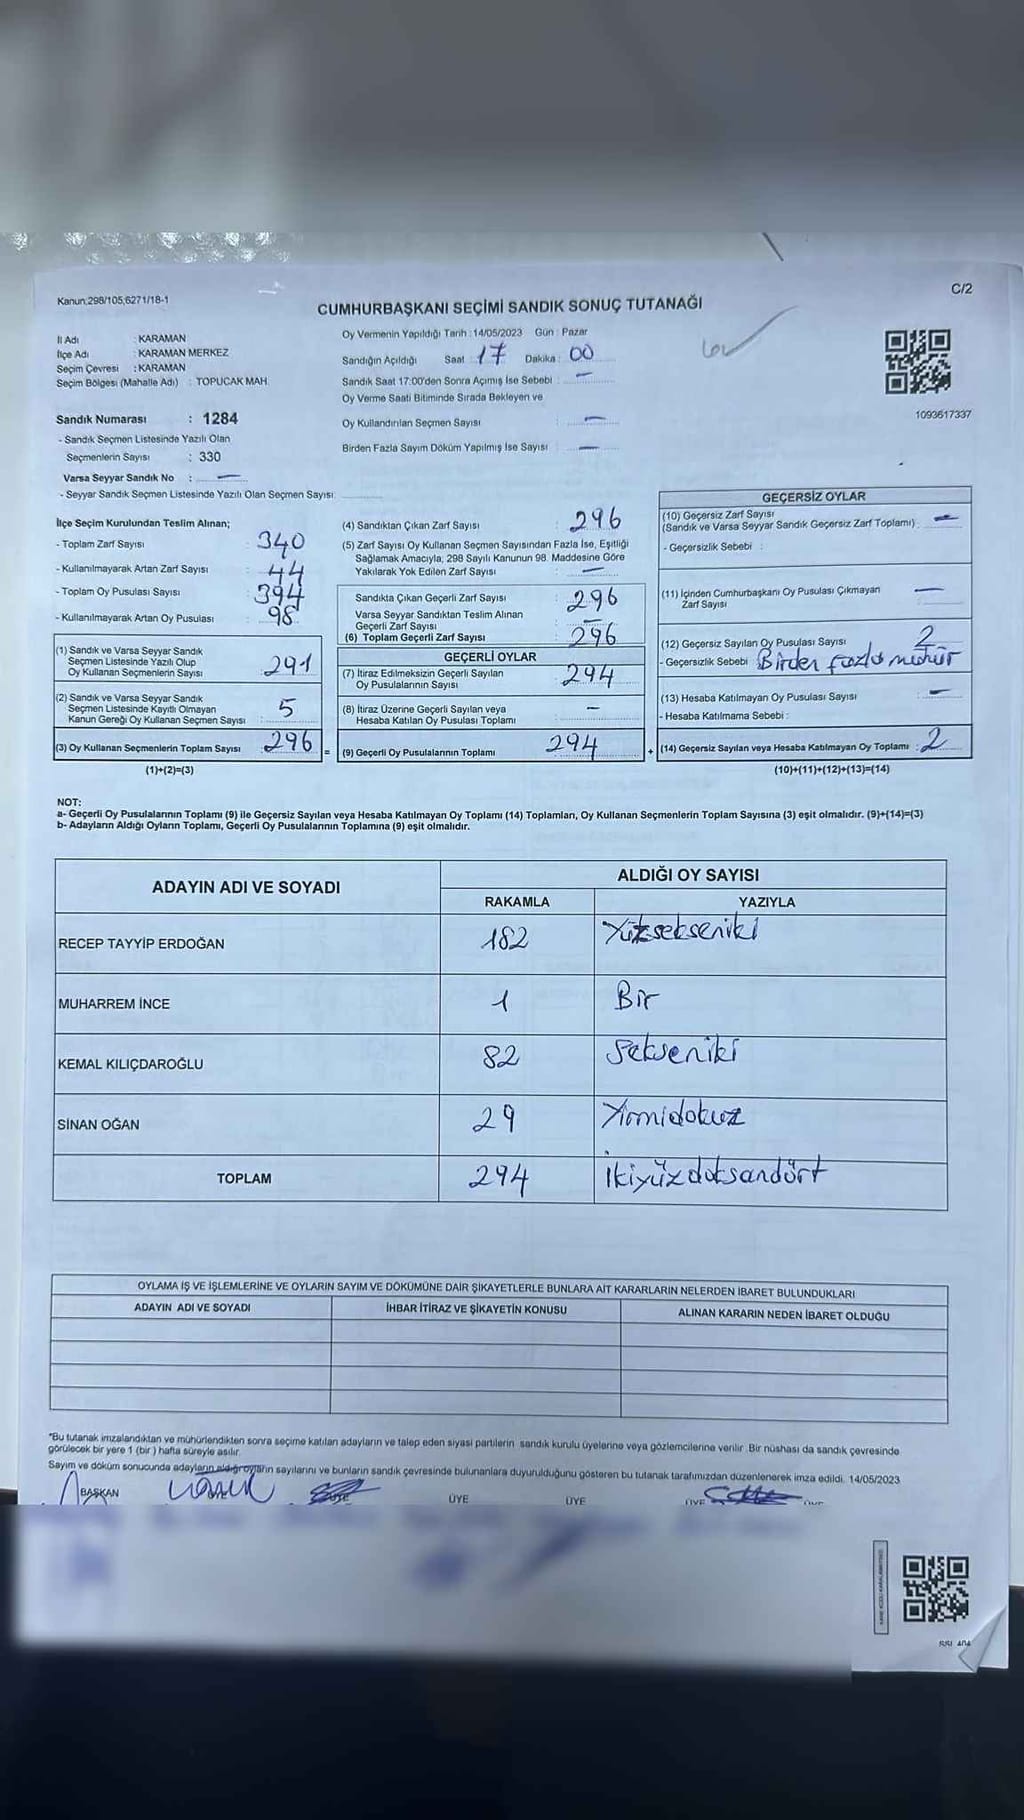 Kanun;298/105,6271/18-1
C/2
CUMHURBAŞKANI SEÇİMİ SANDIK SONUÇ TUTANAĞI
İl Adı : KARAMAN
İlçe Adı : KARAMAN MERKEZ
Seçim Çevresi : KARAMAN
Seçim Bölgesi (Mahalle Adı) : TOPUCAK MAH.
Sandık Numarası : 1284
- Sandık Seçmen Listesinde Yazılı Olan
Seçmenlerin Sayısı : 330
Varsa Seyyar Sandık No : —
- Seyyar Sandık Seçmen Listesinde Yazılı Olan Seçmen Sayısı:
Oy Vermenin Yapıldığı Tarih : 14/05/2023 Gün : Pazar
Sandığın Açıldığı Saat 17 Dakika : 00
Sandık Saat 17:00'den Sonra Açımış İse Sebebi : —
Oy Verme Saati Bitiminde Sırada Bekleyen ve
Oy Kullandırılan Seçmen Sayısı : —
Birden Fazla Sayım Döküm Yapılmış İse Sayısı : —
1093617337
İlçe Seçim Kurulundan Teslim Alınan;
- Toplam Zarf Sayısı : 340
- Kullanılmayarak Artan Zarf Sayısı : 44
- Toplam Oy Pusulası Sayısı : 394
- Kullanılmayarak Artan Oy Pusulası : 98
(1) Sandık ve Varsa Seyyar Sandık
Seçmen Listesinde Yazılı Olup
Oy Kullanan Seçmenlerin Sayısı : 291
(2) Sandık ve Varsa Seyyar Sandık
Seçmen Listesinde Kayıtlı Olmayan
Kanun Gereği Oy Kullanan Seçmen Sayısı : 5
(3) Oy Kullanan Seçmenlerin Toplam Sayısı : 296
(1)+(2)=(3)
(4) Sandıktan Çıkan Zarf Sayısı : 296
(5) Zarf Sayısı Oy Kullanan Seçmen Sayısından Fazla İse, Eşitliği
Sağlamak Amacıyla, 298 Sayılı Kanunun 98. Maddesine Göre
Yakılarak Yok Edilen Zarf Sayısı : —
Sandıkta Çıkan Geçerli Zarf Sayısı : 296
Varsa Seyyar Sandıktan Teslim Alınan
Geçerli Zarf Sayısı : —
(6) Toplam Geçerli Zarf Sayısı : 296
GEÇERLİ OYLAR
(7) İtiraz Edilmeksizin Geçerli Sayılan
Oy Pusulalarının Sayısı : 294
(8) İtiraz Üzerine Geçerli Sayılan veya
Hesaba Katılan Oy Pusulası Toplamı : —
= (9) Geçerli Oy Pusulalarının Toplamı 294
GEÇERSİZ OYLAR
(10) Geçersiz Zarf Sayısı
(Sandık ve Varsa Seyyar Sandık Geçersiz Zarf Toplamı) : —
- Geçersizlik Sebebi :
(11) İçinden Cumhurbaşkanı Oy Pusulası Çıkmayan
Zarf Sayısı : —
(12) Geçersiz Sayılan Oy Pusulası Sayısı : 2
- Geçersizlik Sebebi : Birden fazla mühür
(13) Hesaba Katılmayan Oy Pusulası Sayısı : —
- Hesaba Katılmama Sebebi :
+ (14) Geçersiz Sayılan veya Hesaba Katılmayan Oy Toplamı : 2
(10)+(11)+(12)+(13)=(14)
NOT:
a- Geçerli Oy Pusulalarının Toplamı (9) ile Geçersiz Sayılan veya Hesaba Katılmayan Oy Toplamı (14) Toplamları, Oy Kullanan Seçmenlerin Toplam Sayısına (3) eşit olmalıdır. (9)+(14)=(3)
b- Adayların Aldığı Oyların Toplamı, Geçerli Oy Pusulalarının Toplamına (9) eşit olmalıdır.
ADAYIN ADI VE SOYADI ALDIĞI OY SAYISI
RAKAMLA YAZIYLA
RECEP TAYYİP ERDOĞAN 182 Yüzsekseniki
MUHARREM İNCE 1 Bir
KEMAL KILIÇDAROĞLU 82 Sekseniki
SİNAN OĞAN 29 Yirmidokuz
TOPLAM 294 İkiyüzdoksandört
OYLAMA İŞ VE İŞLEMLERİNE VE OYLARIN SAYIM VE DÖKÜMÜNE DAİR ŞİKAYETLERLE BUNLARA AİT KARARLARIN NELERDEN İBARET BULUNDUKLARI
ADAYIN ADI VE SOYADI İHBAR İTİRAZ VE ŞİKAYETİN KONUSU ALINAN KARARIN NEDEN İBARET OLDUĞU
*Bu tutanak imzalandıktan ve mühürlendikten sonra seçime katılan adayların ve talep eden siyasi partilerin sandık kurulu üyelerine veya gözlemcilerine verilir. Bir nüshası da sandık çevresinde
görülecek bir yere 1 (bir) hafta süreyle asılır.
Sayım ve döküm sonucunda adayların aldığı oyların sayılarını ve bunların sandık çevresinde bulunanlara duyurulduğunu gösteren bu tutanak tarafımızdan düzenlenerek imza edildi. 14/05/2023
BAŞKAN ÜYE ÜYE ÜYE ÜYE ÜYE ÜYE